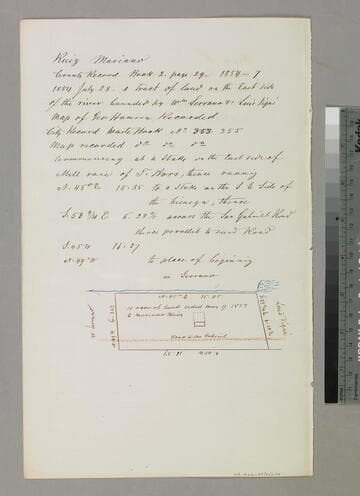 Ruiz Mariano
County Record Book 2. page 29. 1854-7
1854 July 28. a tract of land on the East side
of the river bounded by Wm Serrano & Luis
Map of Geo Hansen Recorded
City Record Book No 353 355
Map recorded do do do
Commencing at a Stake on the East side of
Mill race of F. thence running
N. 45° E 15-35 to a Stake on the S E Side of
the Cienega, thence
S. 58 3/4 E 6.20 1/2 across the San Gabriel Road
thence parallel to said Road
S. 45 W 16-27
N. 49° W to place of beginning
Serrano
N-45° E 15-35
10 acres of land 1853
to Mariano Ruiz
Road to San Gabriel
S 58 3/4 E 6.20 1/2
Luis